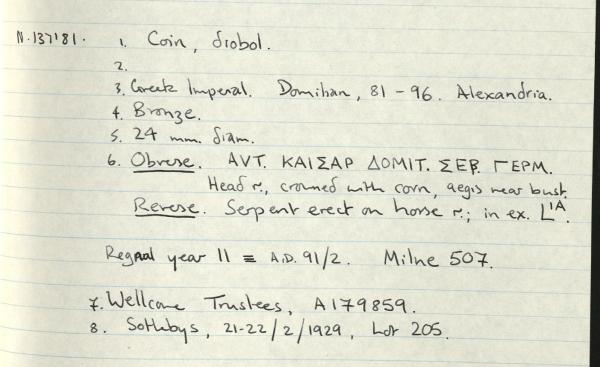 N.137'81. 1. Coin, diobol.
2.
3. Greek Imperial. Domitian, 81 - 96. Alexandria.
4. Bronze.
5. 24 mm. diam.
6. Obverse. ΑVΤ. ΚΑΙΣΑΡ ΔΟΜΙΤ. ΣΕΒ. ΓΕΡΜ.
Head r., crowned with corn, aegis near bust.
Reverse. Serpent erect on horse r.; in ex. LΙΑ.
Regnal year 11 = A.D. 91/2. Milne 507.
7. Wellcome Trustees, A179859.
8. Sothebys, 21-22/2/1929, Lot 205.